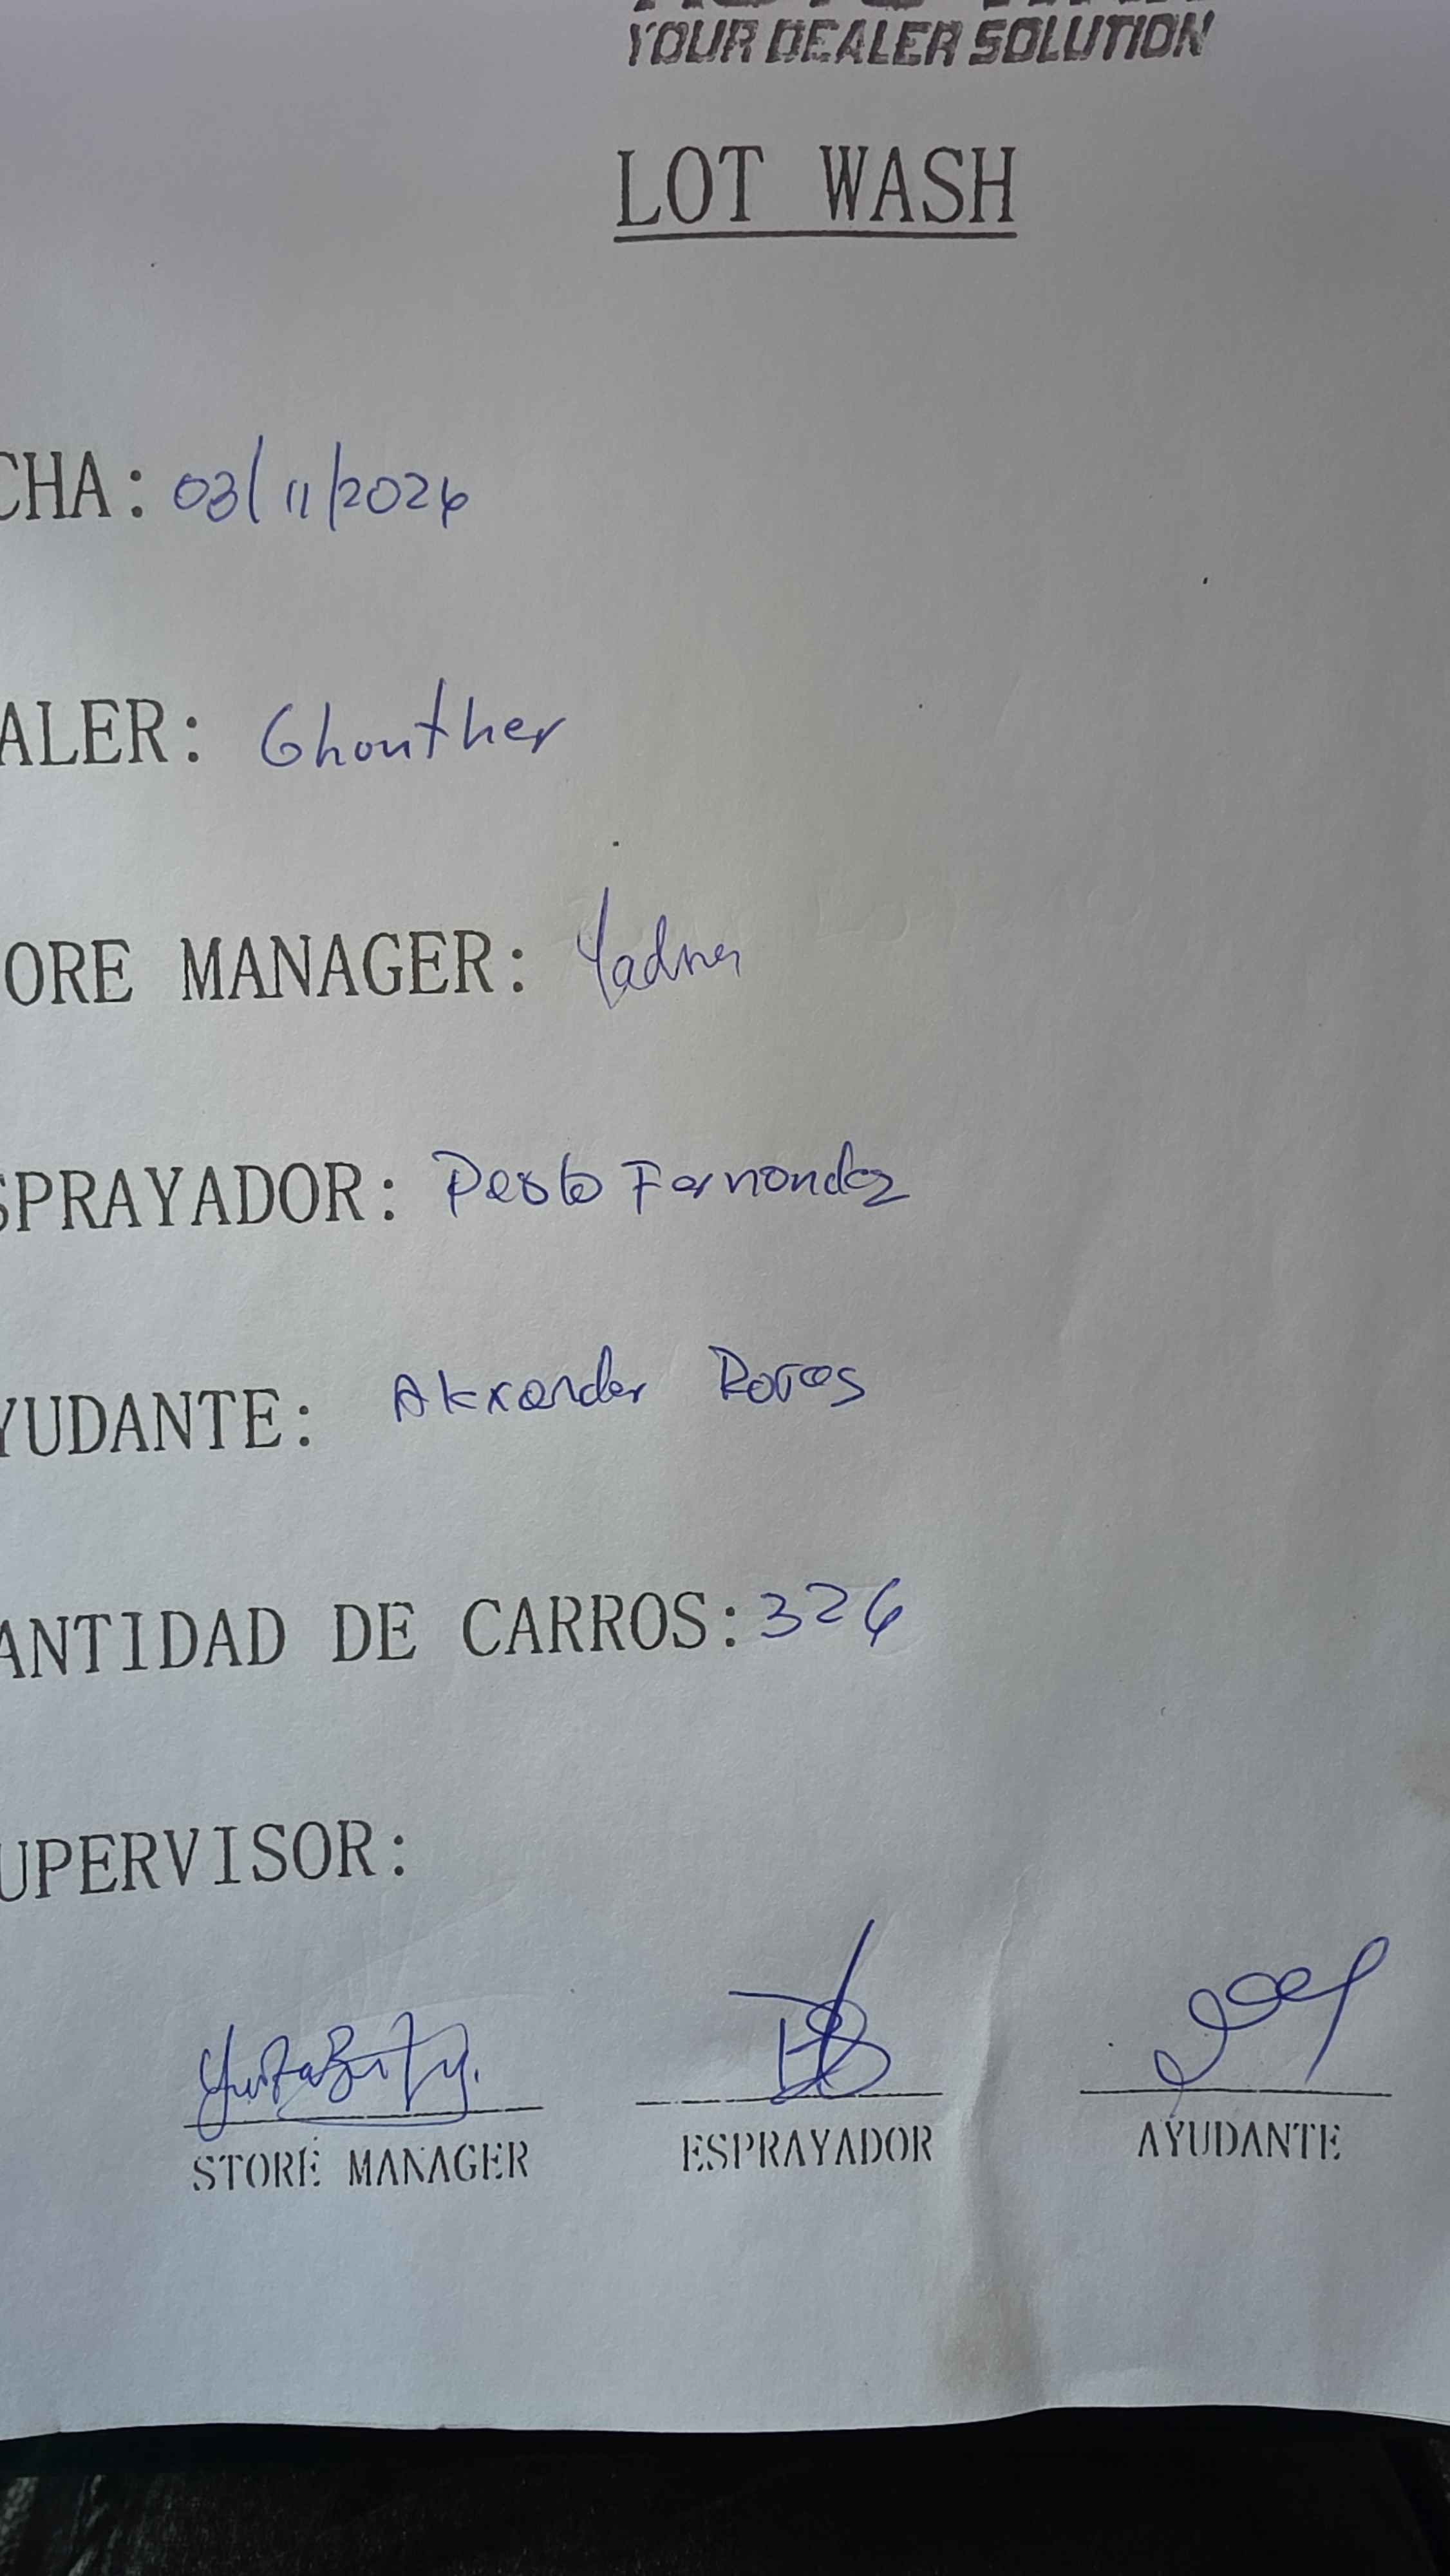 YOUR DEALER SOLUTION
LOT WASH
CHA: 03/11/2026
ALER: Ghonther
ORE MANAGER: Yadna
SPRAYADOR: Fernandez
YUDANTE: Alexander Rojas
ANTIDAD DE CARROS: 326
UPERVISOR:
STORE MANAGER ESPRAYADOR AYUDANTE